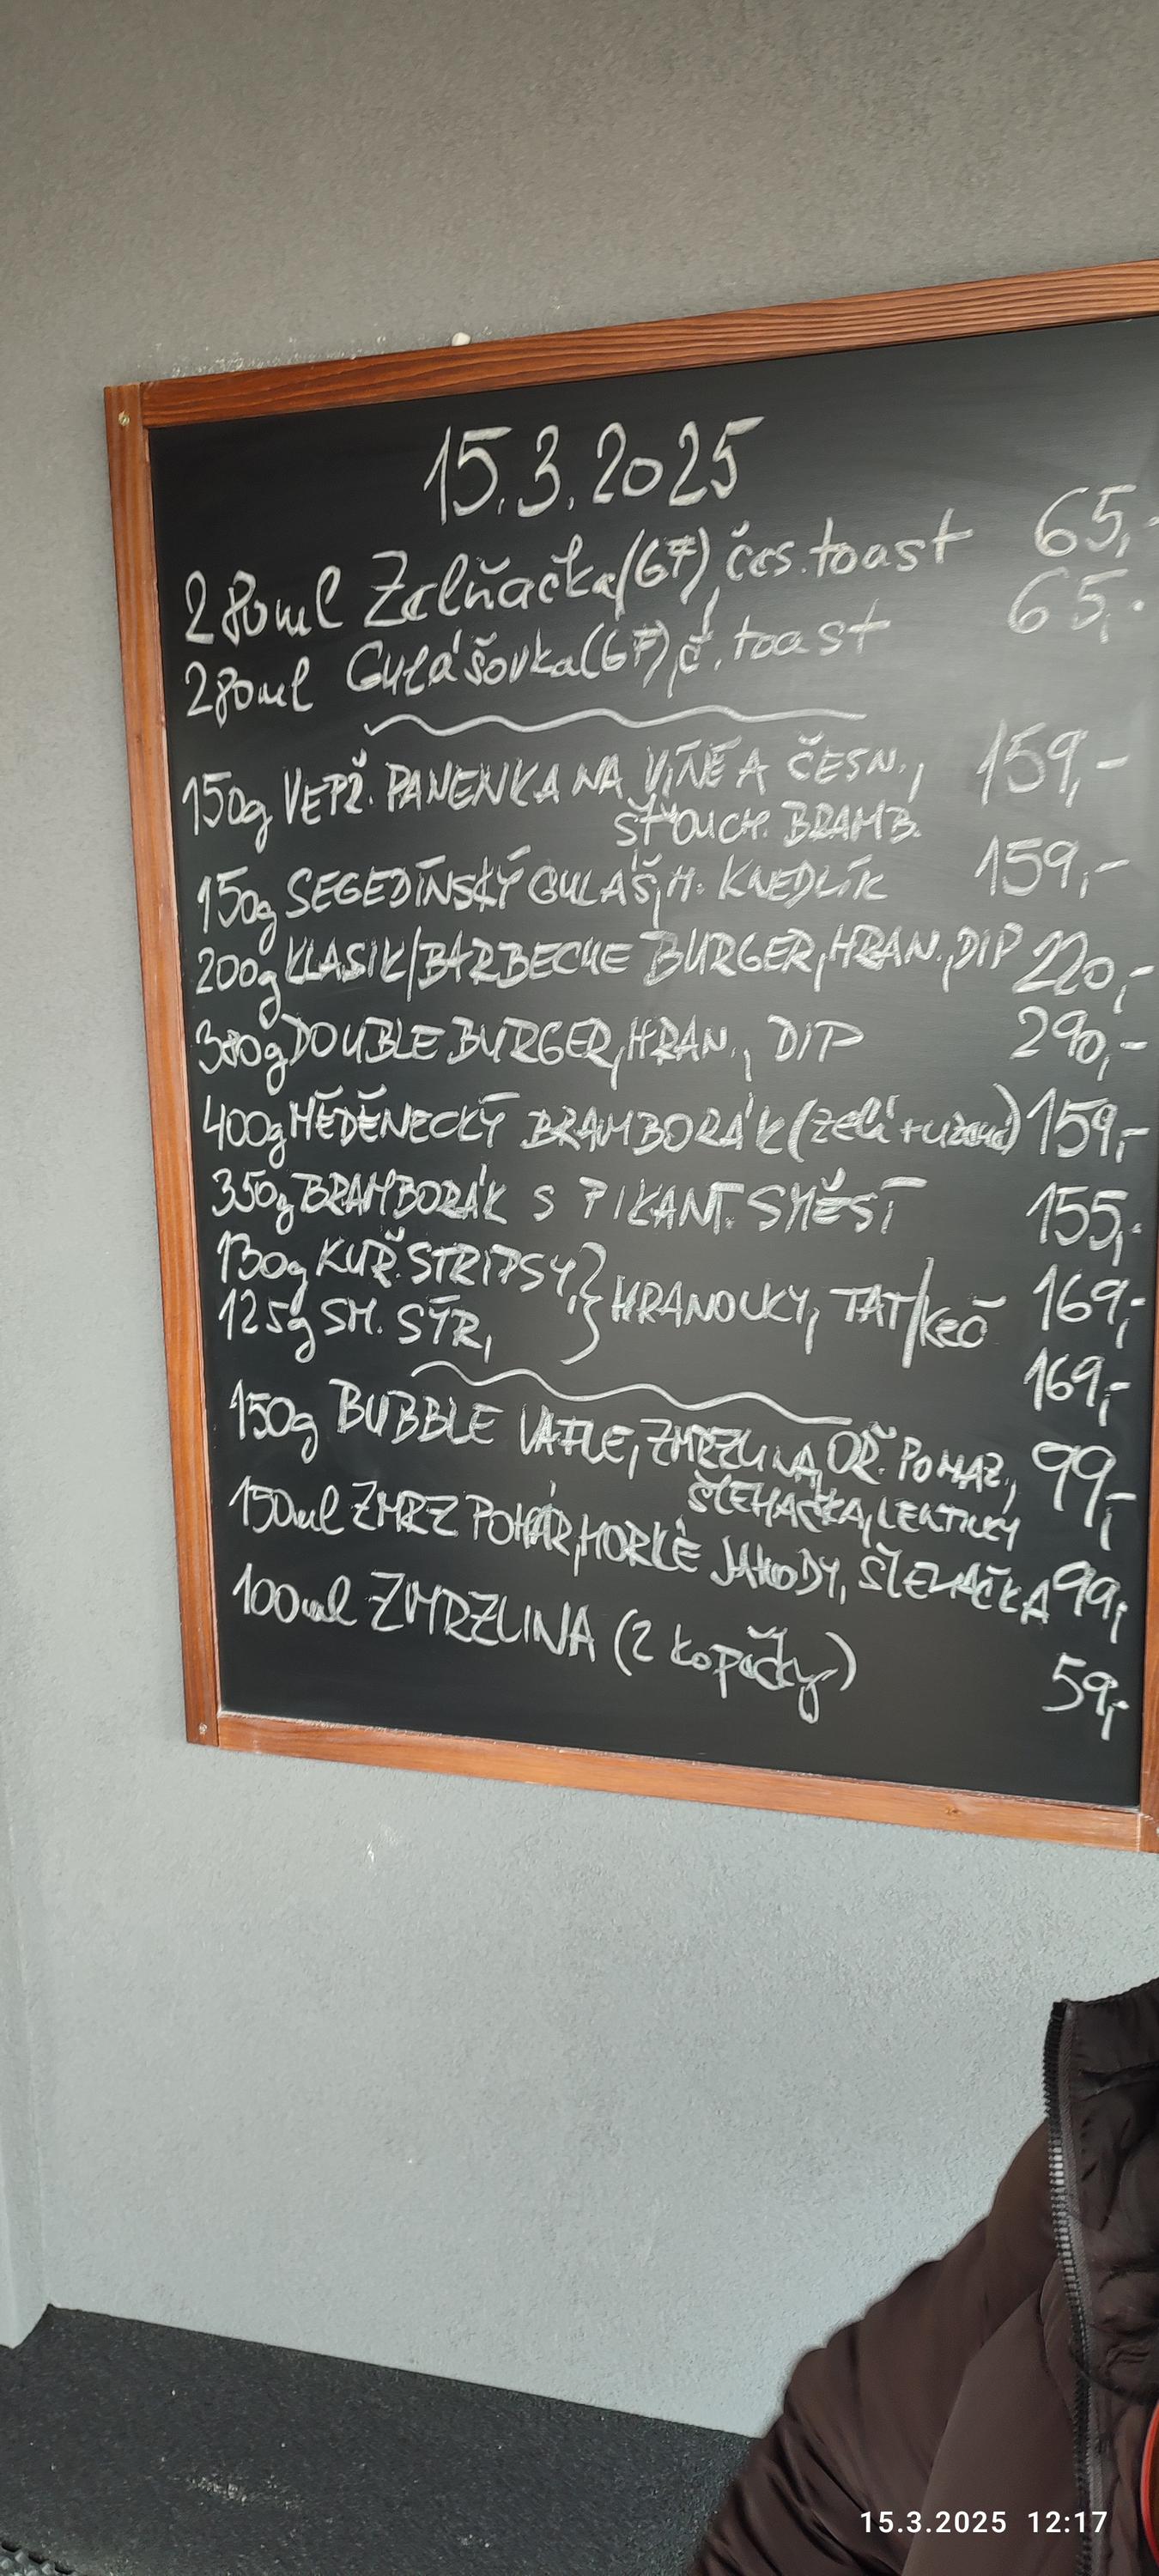 15.3.2025
280ml Zelňačka(GF), čes. toast 65,-
280ml Gulášovka(GF), č. toast 65,-
150g VEPŘ. PANENKA NA VÍNĚ A ČESN., 159,-
ŠŤOUCH. BRAMB.
150g SEGEDÍNSKÝ GULÁŠ, H. KNEDLÍK 159,-
200g KLASIK/BARBECUE BURGER, HRAN., DIP 220,-
DOUBLE BURGER, HRAN., DIP 290,-
400g MĚDĚNECKÝ BRAMBORÁK (zelí+uzené) 159,-
350g BRAMBORÁK S PIKANT. SMĚSÍ 155,-
130g KUŘ. STRIPSY, } HRANOLKY, TAT/keč 169,-
125g SM. SÝR, 169,-
150g BUBBLE VAFLE, ZMRZLINA, OŘ. POMAZ., 99,-
ŠLEHAČKA, LENTILKY
150ml ZMRZ POHÁR, HORKÉ JAHODY, ŠLEHAČKA 99,-
100ml ZMRZLINA (2 kopečky) 59,-
15.3.2025 12:17